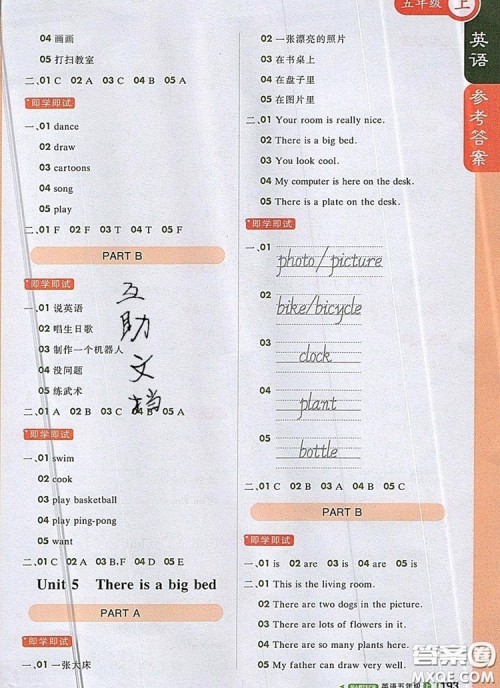 五年级 上
英语
参考答案
04 画画
05 打扫教室
二、01 C 02 A 03 C 04 B 05 A
即学即试
一、01 dance
02 draw
03 cartoons
04 song
05 play
二、01 F 02 F 03 T 04 T 05 F
PART B
即学即试
一、01 说英语
02 唱生日歌
03 制作一个机器人
04 没问题
05 练武术
二、01 A 02 C 03 B 04 B 05 A
即学即试
一、01 swim
02 cook
03 play basketball
04 play ping-pong
05 want
二、01 C 02 A 03 B,F 04 D 05 E
Unit 5 There is a big bed
PART A
即学即试
一、01 一张大床
02 一张漂亮的照片
03 在书桌上
04 在盘子里
05 在图片里
二、01 Your room is really nice.
02 There is a big bed.
03 You look cool.
04 My computer is here on the desk.
05 There is a plate on the desk.
即学即试
一、01 photo/picture
02 bike/bicycle
03 clock
04 plant
05 bottle
二、01 C 02 A 03 B 04 B 05 C
PART B
即学即试
一、01 is 02 are 03 is 04 are 05 is
二、01 This is the living room.
02 There are two dogs in the picture.
03 There are lots of flowers in it.
04 There are so many plants here.
05 My father can draw very well.
互助文档
英语五年级 上
193
答案圈
MXQE.COM